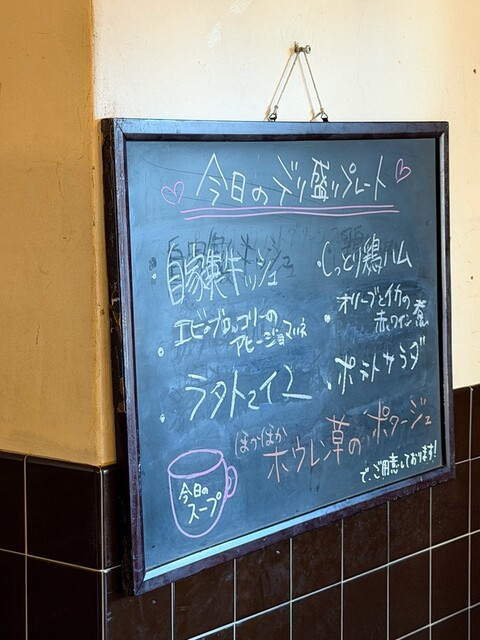 今日のデリ盛りプレート
・自家製キッシュ
・しっとり鶏ハム
・エビとブロッコリーの
アヒージョ風味
・オリーブとイカの
赤ワイン煮
・ラタトゥイユ
・ポテトサラダ
今日の
スープ
ほかほか
ホウレン草のポタージュ
で、ご用意しております!